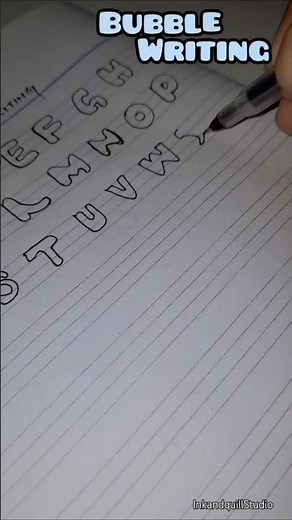 Bubble
Writing
E F G H
L M N O P
S T U V W
InkandquillStudio